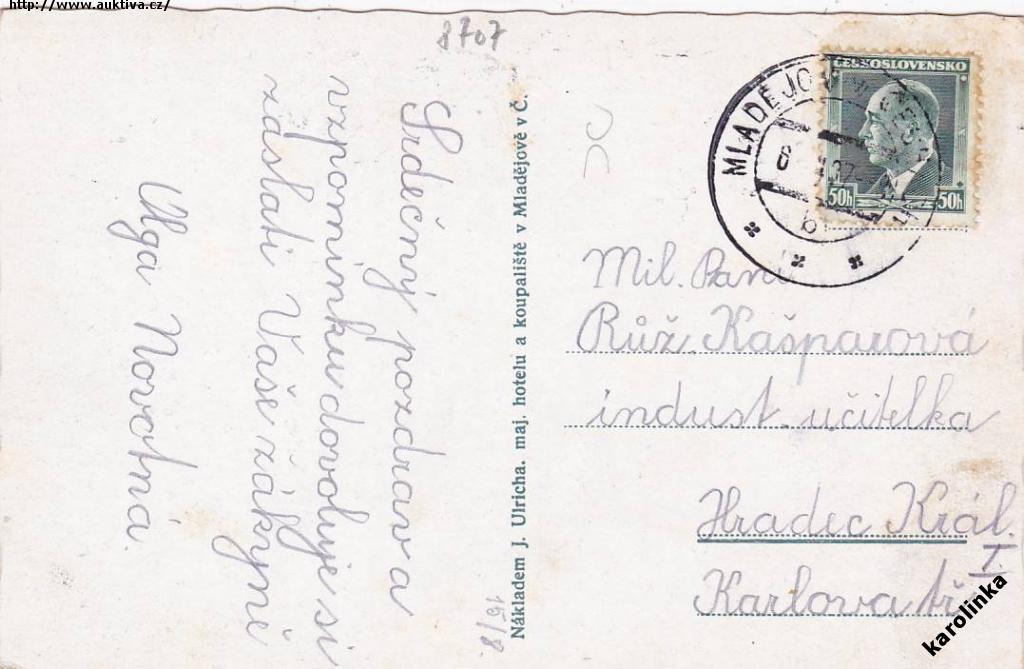 http://www.auktiva.cz/
8707
Srdečný pozdrav a
vzpomínku dovoluje si
zaslati Vaše žákyně
Olga Novotná.
15/8.
Nákladem J. Ulricha. maj. hotelu a koupaliště v Mladějově v Č.
ČESKOSLOVENSKO
50h 50h
MLADĚJOV
37
b
Mil. Paní
Růž. Kašparová
indust. učitelka
Hradec Král.
I.
Karlova tř.
karolinka